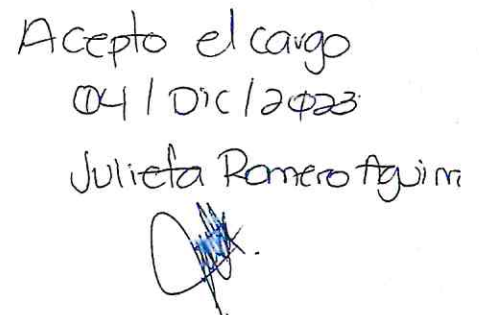 Acepto el cargo
04/Dic/2023
Julieta Romero Aguirr